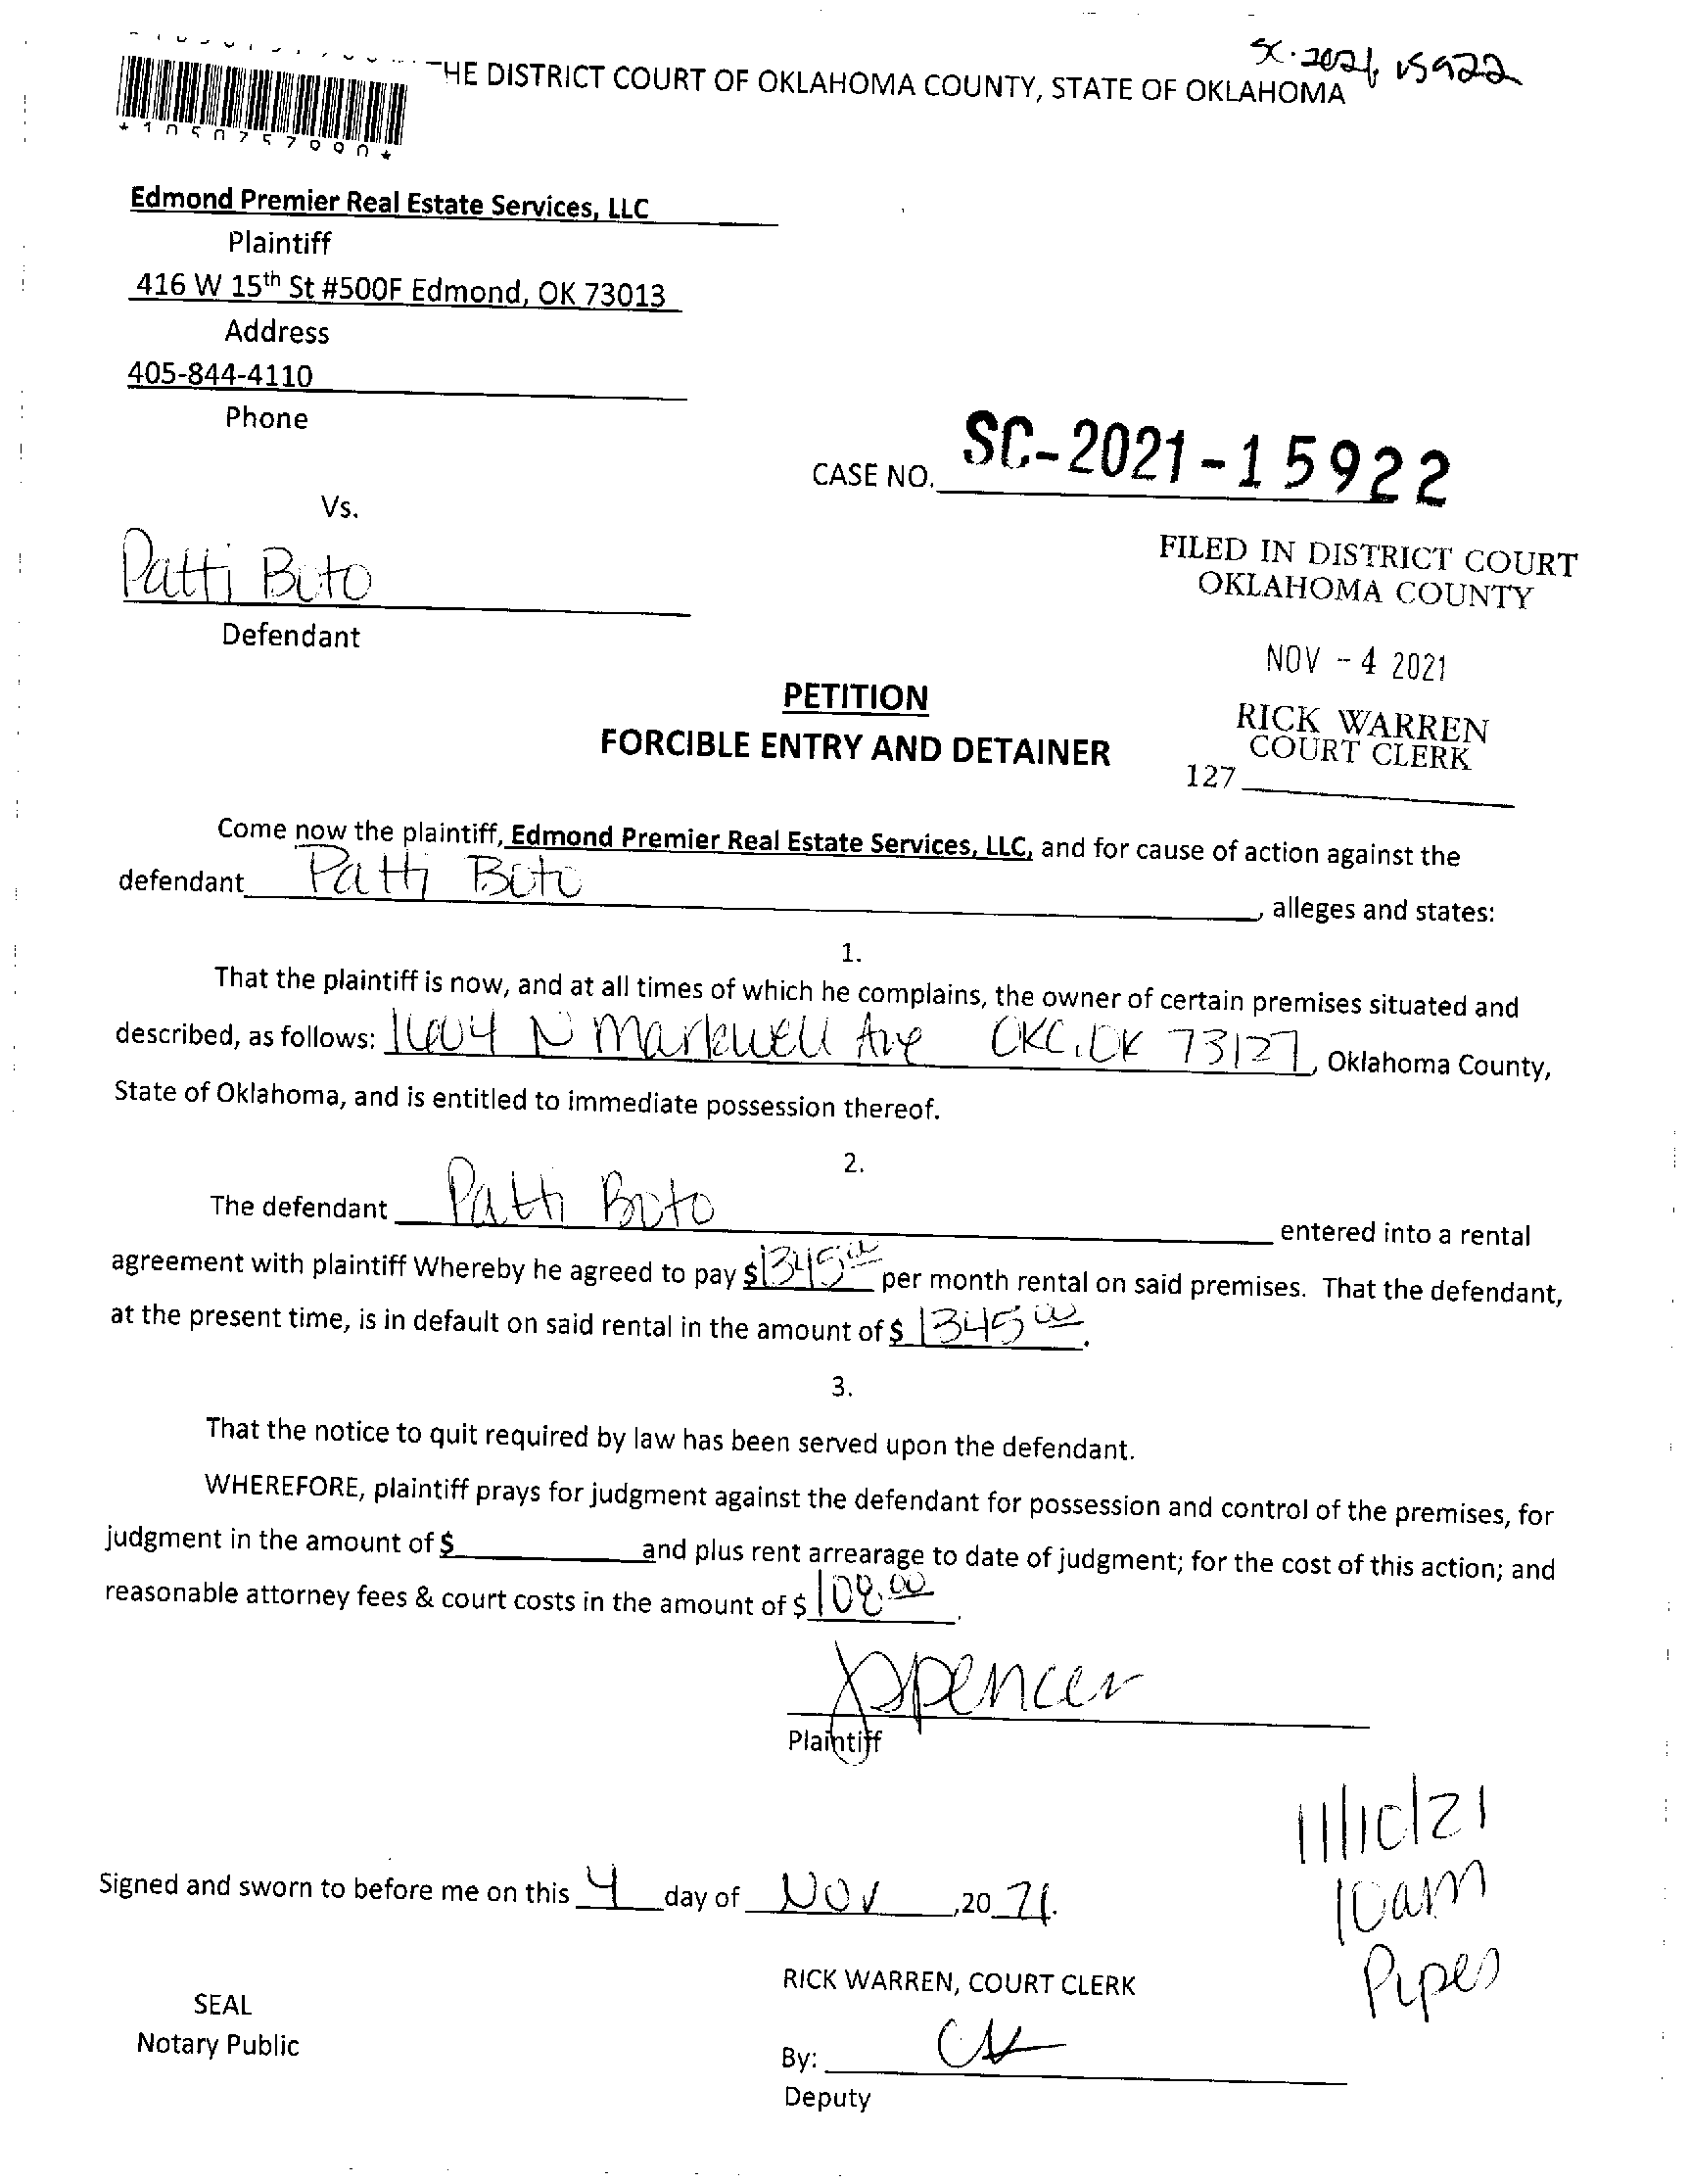 SC-2021-15922
THE DISTRICT COURT OF OKLAHOMA COUNTY, STATE OF OKLAHOMA
Edmond Premier Real Estate Services, LLC
Plaintiff
416 W 15th St #500F Edmond, OK 73013
Address
405-844-4110
Phone
CASE NO. SC-2021-15922
Vs.
Patti Boto
Defendant
FILED IN DISTRICT COURT
OKLAHOMA COUNTY
NOV - 4 2021
RICK WARREN
COURT CLERK
127
PETITION
FORCIBLE ENTRY AND DETAINER
Come now the plaintiff, Edmond Premier Real Estate Services, LLC, and for cause of action against the
defendant Patti Boto, alleges and states:
1.
That the plaintiff is now, and at all times of which he complains, the owner of certain premises situated and
described, as follows: 1604 N Markwell Ave OKC, OK 73127, Oklahoma County,
State of Oklahoma, and is entitled to immediate possession thereof.
2.
The defendant Patti Boto entered into a rental
agreement with plaintiff Whereby he agreed to pay $1345.00 per month rental on said premises. That the defendant,
at the present time, is in default on said rental in the amount of $ 1345.00.
3.
That the notice to quit required by law has been served upon the defendant.
WHEREFORE, plaintiff prays for judgment against the defendant for possession and control of the premises, for
judgment in the amount of $ and plus rent arrearage to date of judgment; for the cost of this action; and
reasonable attorney fees & court costs in the amount of $ 108.00.
JSpencer
Plaintiff
11/10/21
10am
Pipes
Signed and sworn to before me on this 4 day of Nov ,20 21.
RICK WARREN, COURT CLERK
SEAL
Notary Public
By:
Deputy